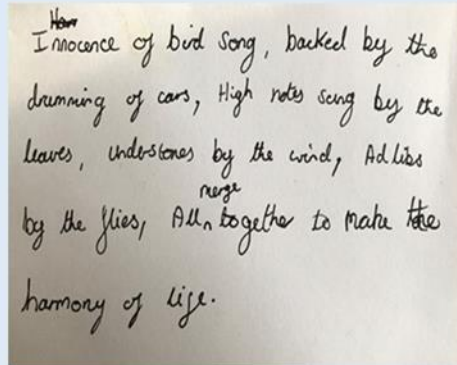 Innocence of bird song, backed by the
drumming of cars, High notes sung by the
leaves, understones by the wind, Ad libs
merge
by the flies, All together to make the
harmony of life.